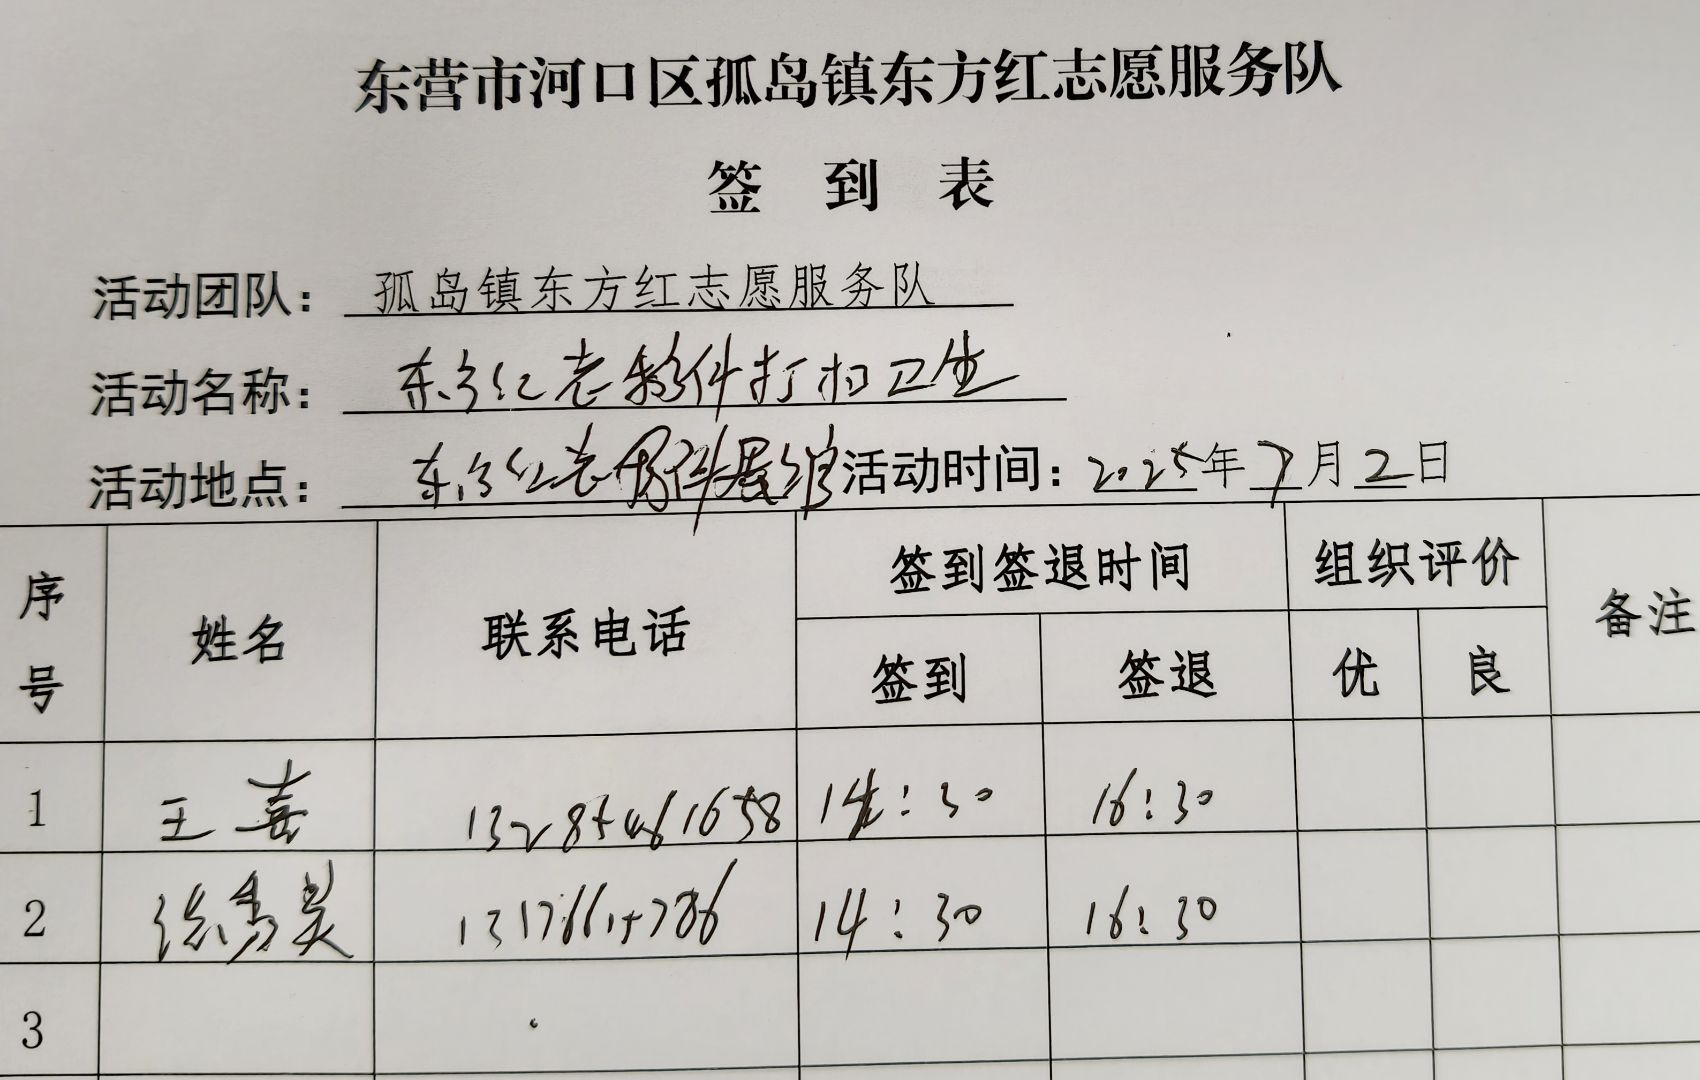 东营市河口区孤岛镇东方红志愿服务队
签 到 表
活动团队：孤岛镇东方红志愿服务队
活动名称：东方红老物件打扫卫生
活动地点：东方红老物件展馆 活动时间：2025年7月2日
序号 姓名 联系电话 签到签退时间 组织评价 备注
签到 签退 优 良
1 王喜 13285461658 14：30 16：30
2 14：30 16：30
3